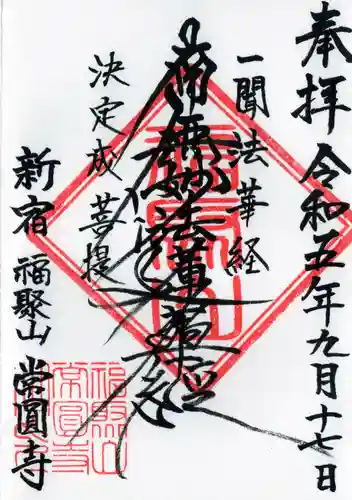 奉拝 令和五年九月十七日
一聞法華経
南無妙法蓮華経
決定成菩提
新宿 福聚山 常圓寺
福聚山
常圓寺